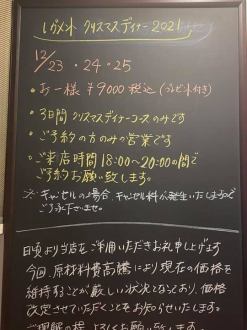 レガメント クリスマスディナー 2021
12/23・24・25
・お一様 ¥9000 税込 (プレゼント付き)
・3日間 クリスマスディナーコースのみです
・ご予約の方のみの営業です
・ご来店時間 18:00〜20:00の間で
ご予約お願い致します。
※キャンセルの場合、キャンセル料が発生いたしますので
ご了承くださいませ。
日頃より当店をご利用いただきお礼申し上げます
今回、原材料費高騰により現在の価格を
維持することが厳しい状況となっており、価格
改定させていただくことをお知らせいたします。
ご理解の程、よろしくお願い致します